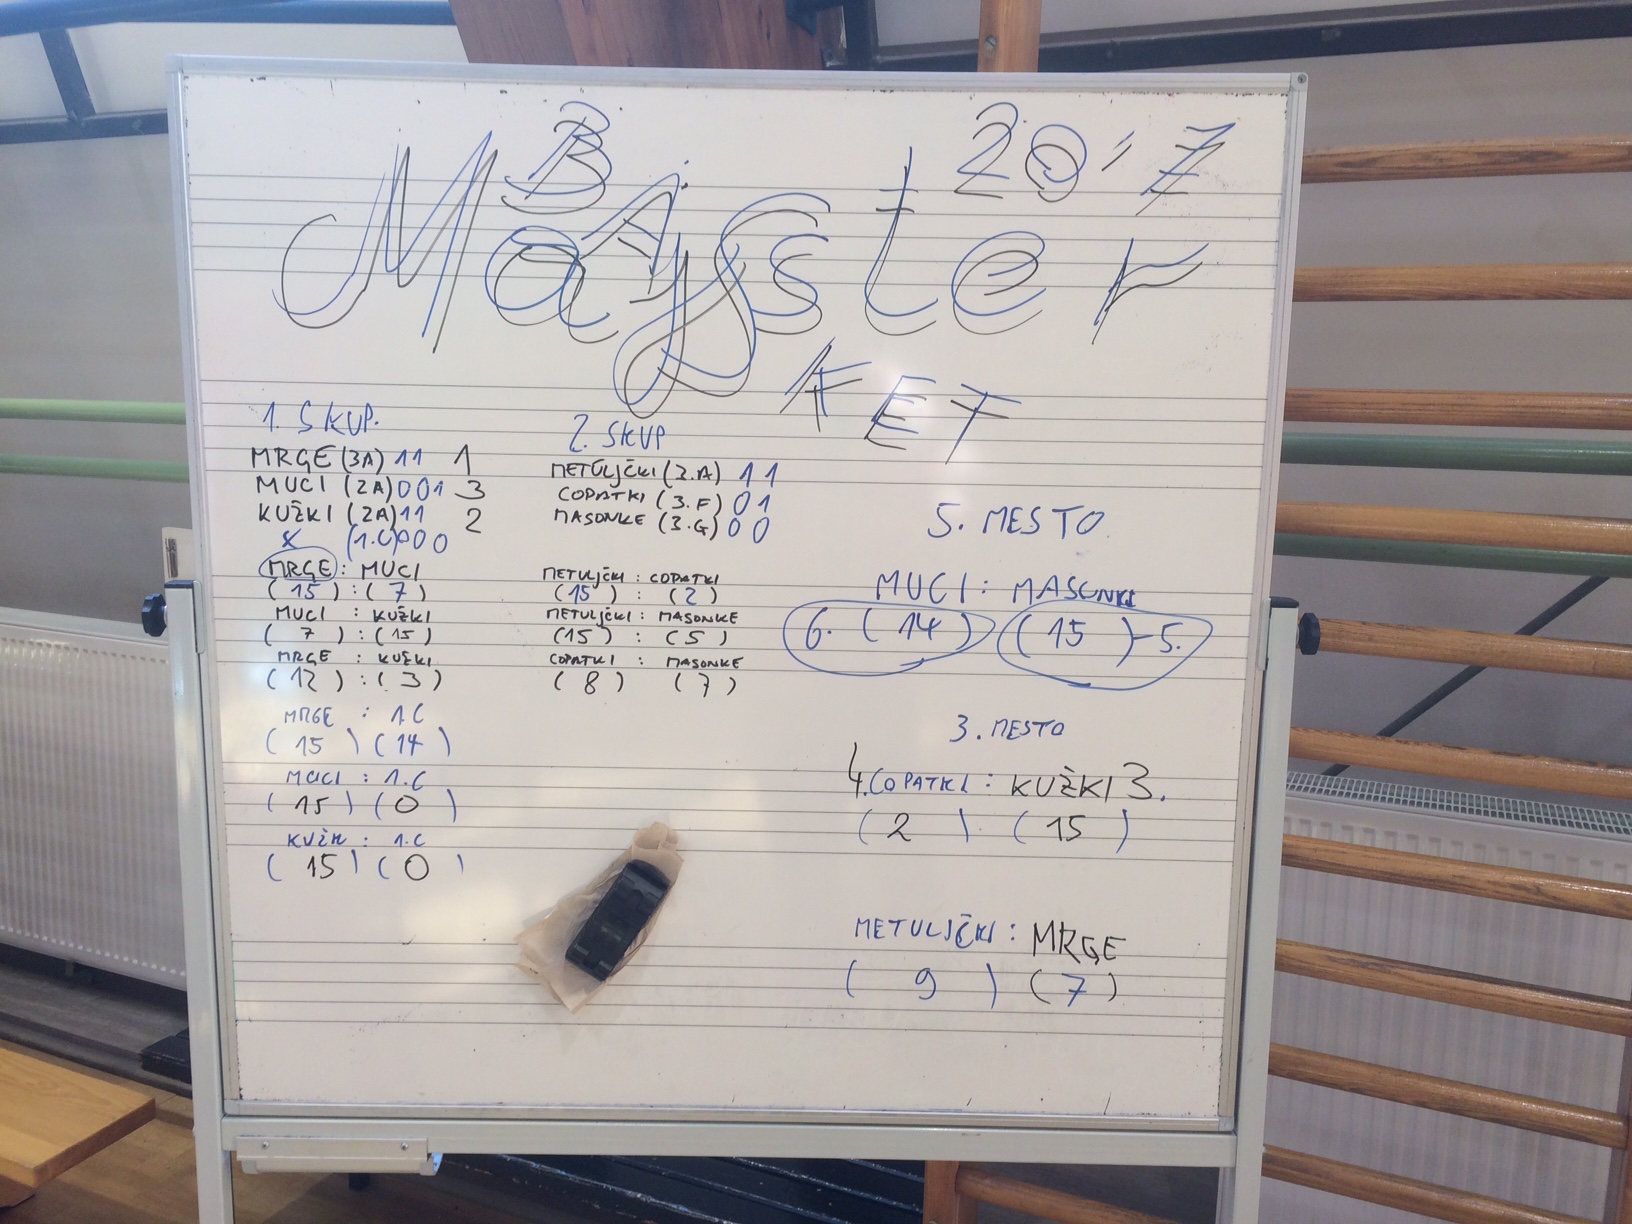 B 2017
Majsster
A
KET
1. SKUP.
MRGE (3A) 11 1
MUCI (2A) 001 3
KUŽKI (2A) 11 2
X (1.C) 000
MRGE : MUCI
(15) : (7)
MUCI : KUŽKI
(7) : (15)
MRGE : KUŽKI
(12) : (3)
MRGE : 1.C
(15) (14)
MUCI : 1.C
(15) (0)
KUŽK : 1.C
(15) (0)
2. SKUP
METULJČKI (2.A) 11
COPATKI (3.F) 01
MASONKE (3.G) 00
METULJČKI : COPATKI
(15) : (2)
METULJČKI : MASONKE
(15) : (5)
COPATKI : MASONKE
(8) (7)
5. MESTO
MUCI : MASONKE
6. (14) (15) - 5.
3. MESTO
4. COPATKI : KUŽKI 3.
(2) (15)
METULJČKI : MRGE
(9) (7)